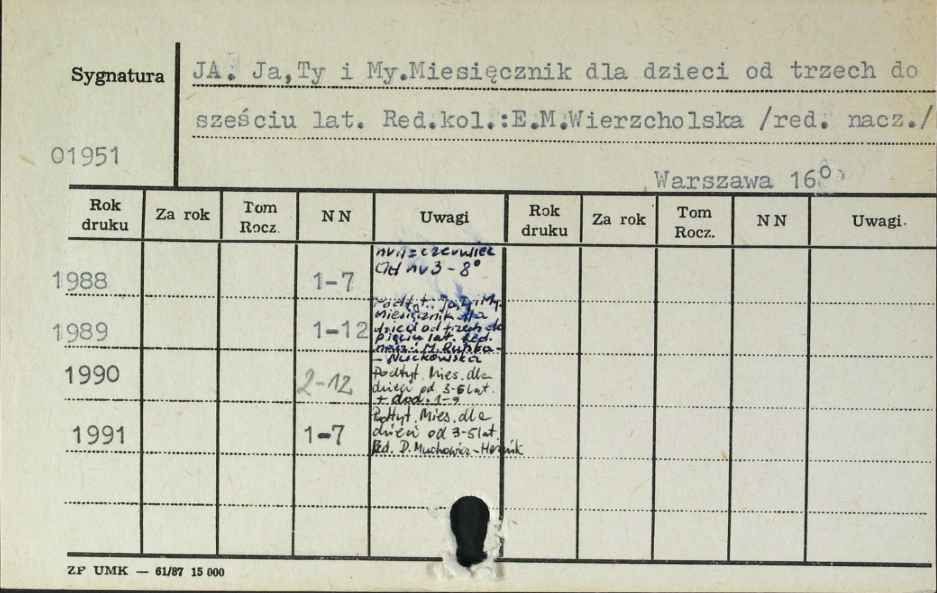 Sygnatura
JA. Ja,Ty i My.Miesięcznik dla dzieci od trzech do
sześciu lat. Red.kol.:E.M.Wierzcholska /red. nacz./
01951
Warszawa 16°
Rok druku Za rok Tom Rocz. NN Uwagi Rok druku Za rok Tom Rocz. NN Uwagi.
nr 1 = czerwiec
Od nr 3 - 8°
1988 1-7
Podtyt.: Ja, Ty i My.
Miesięcznik dla
1989 1-12
dzieci od trzech do
pięciu lat. Red.
nacz.: M.
- Nuckowska
1990 2-12
Podtyt. Mies. dla
dzieci od 3-6 lat
+ dod. 1-9
1991 1-7
Podtyt. Mies. dla
dzieci od 3-5 lat
Red. D.
ZP UMK — 61/87 15 000